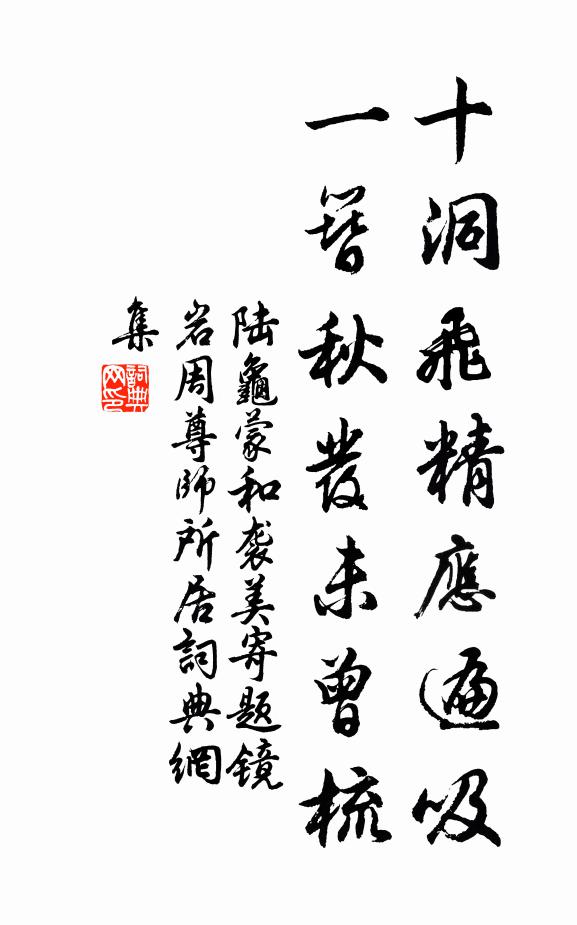 十洞飛精應遍吸
一簪秋發未曾梳
陆龜蒙和袭美寄题镜
岩周尊師所居詞典網
集
詞典网印